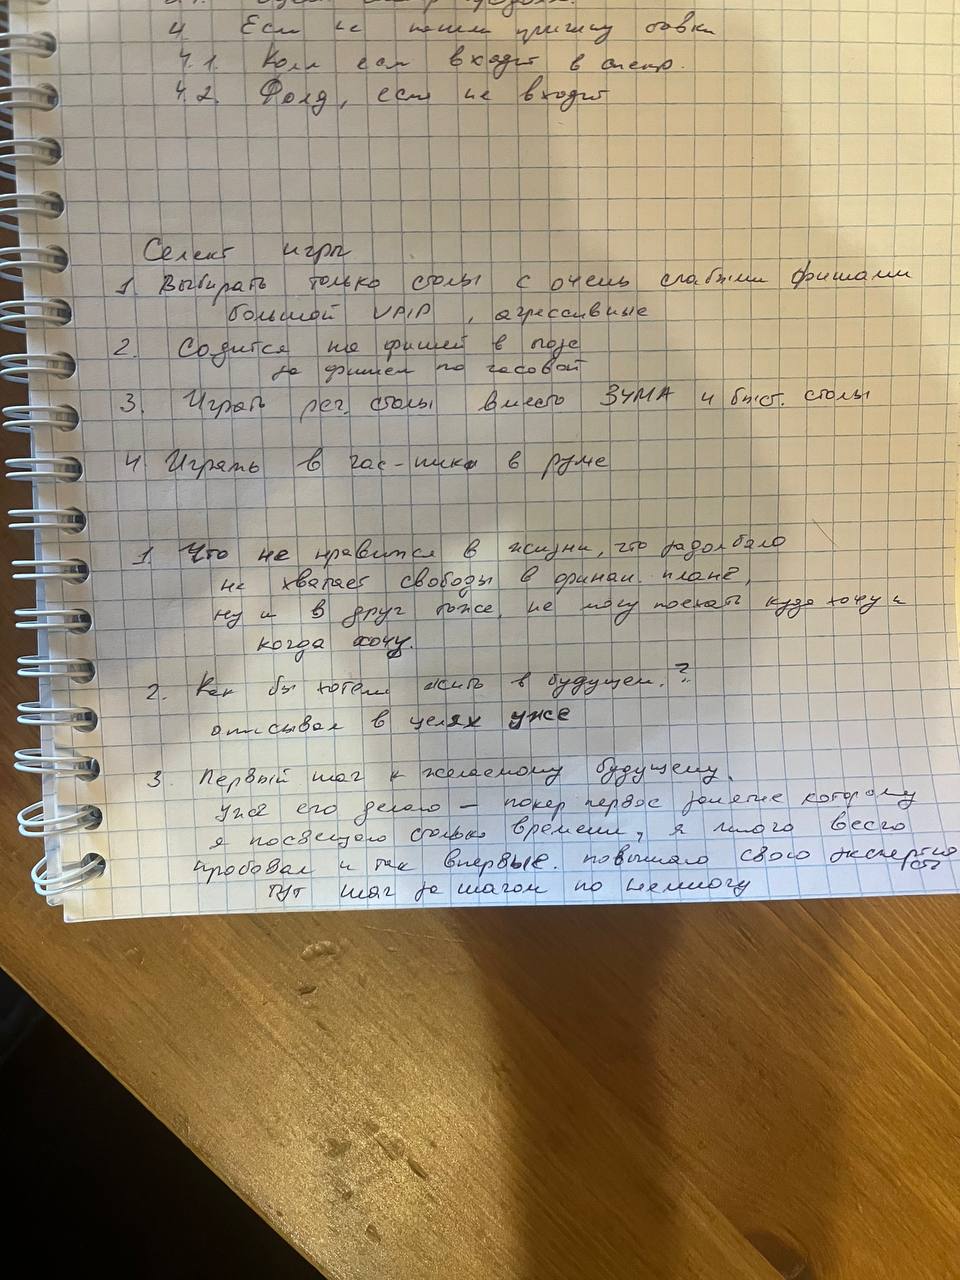 4 Если не нашли причину ставки
4.1. Колл если входит в спектр.
4.2. Фолд, если не входит
Селект игры
1 Выбирать только столы с очень слабыми фишами
большой VPIP, агрессивные
2. Содится на фишей в позе
за фишем по часовой
3. Играть рег. столы вместо ЗУМА и быст. столы
4 Играть в час-пик в руме
1 Что не нравится в жизни, что задолбало
не хватает свободы в финан. плане,
ну и в друг тоже, не могу поехать куда хочу и
когда хочу.
2. Как бы хотели жить в будущем.?
описывал в целях уже
3. Первый шаг к желаемому будущему.
уже его делаю – покер первое занятие которому
я посвещаю столько времени, я много всего
пробовал и так впервые. повышаю свою экспертность
тут шаг за шагом по немногу